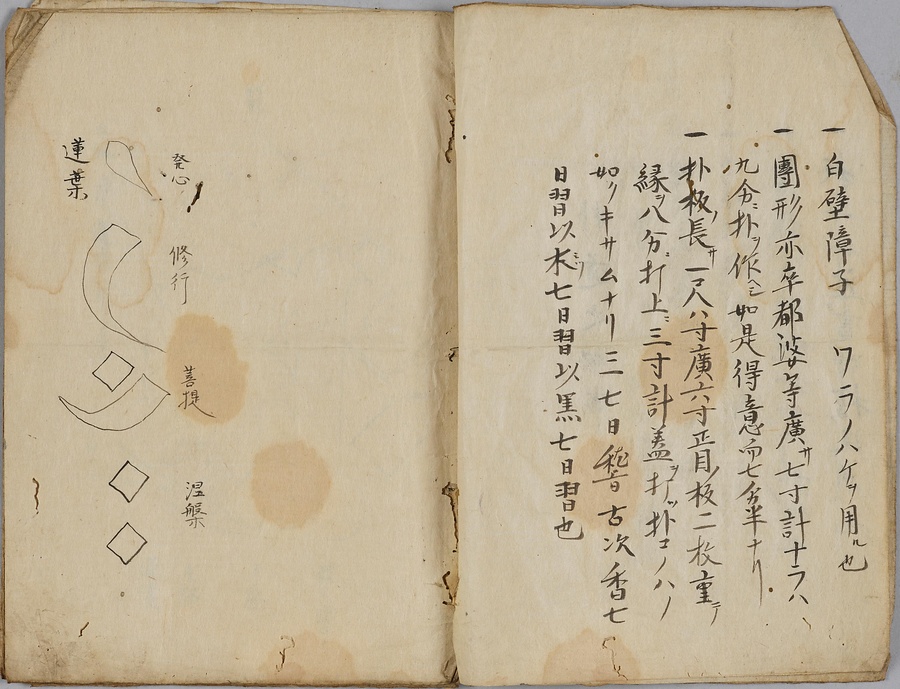 一 白壁障子 ワラノハケヲ用ル也
一 團形亦卒都婆等廣サ七寸計ナラハ
九分ニ朴ヲ作ヘシ如是得意而七分半ナリ
一 朴板長サ一尺八寸廣六寸正目ノ板二枚重テ
縁ヲ八分ニ打上ニ三寸計蓋ヲ打ツ朴コノハノ
如クキサムナリ三七日稽古次香七
日習以水七日習以黒七日習也
発心
修行
菩提
涅槃
蓮葉